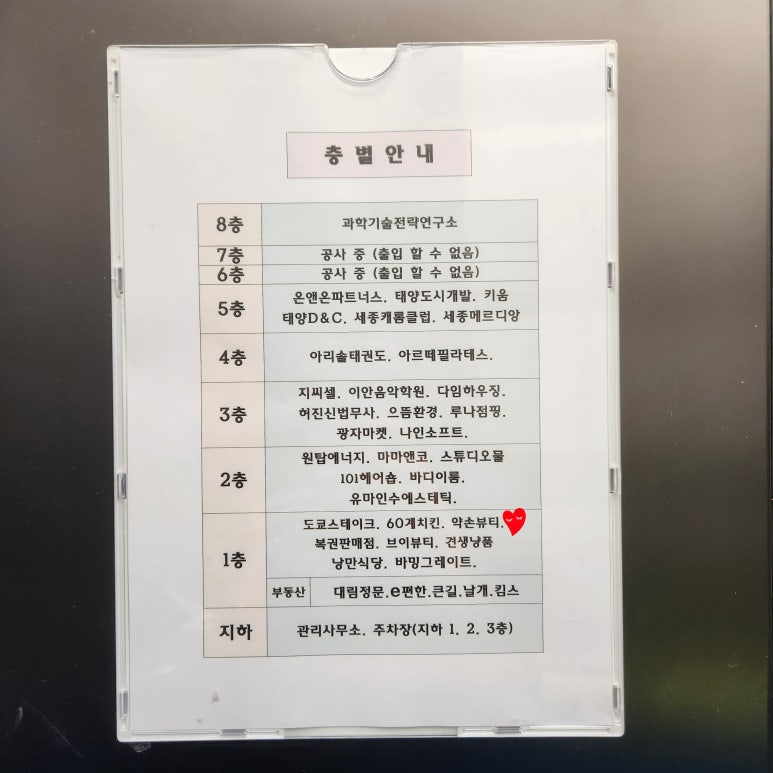 층별안내
8층 과학기술전략연구소
7층 공사 중 (출입 할 수 없음)
6층 공사 중 (출입 할 수 없음)
5층 온앤온파트너스. 태양도시개발. 키움
태양D&C. 세종캐롬클럽. 세종메르디앙
4층 아리솔태권도. 아르떼필라테스.
3층 지씨셀. 이안음악학원. 다임하우징.
허진신법무사. 으뜸환경. 루나점핑.
광자마켓. 나인소프트.
2층 원탑에너지. 마마앤코. 스튜디오물
101헤어숍. 바디이룸.
유마인수에스테틱.
1층 도쿄스테이크. 60계치킨. 약손뷰티.
복권판매점. 브이뷰티. 견생냥품
낭만식당. 바밍그레이트.
부동산 대림정문.e편한.큰길.날개.킴스
지하 관리사무소. 주차장(지하 1. 2. 3층)